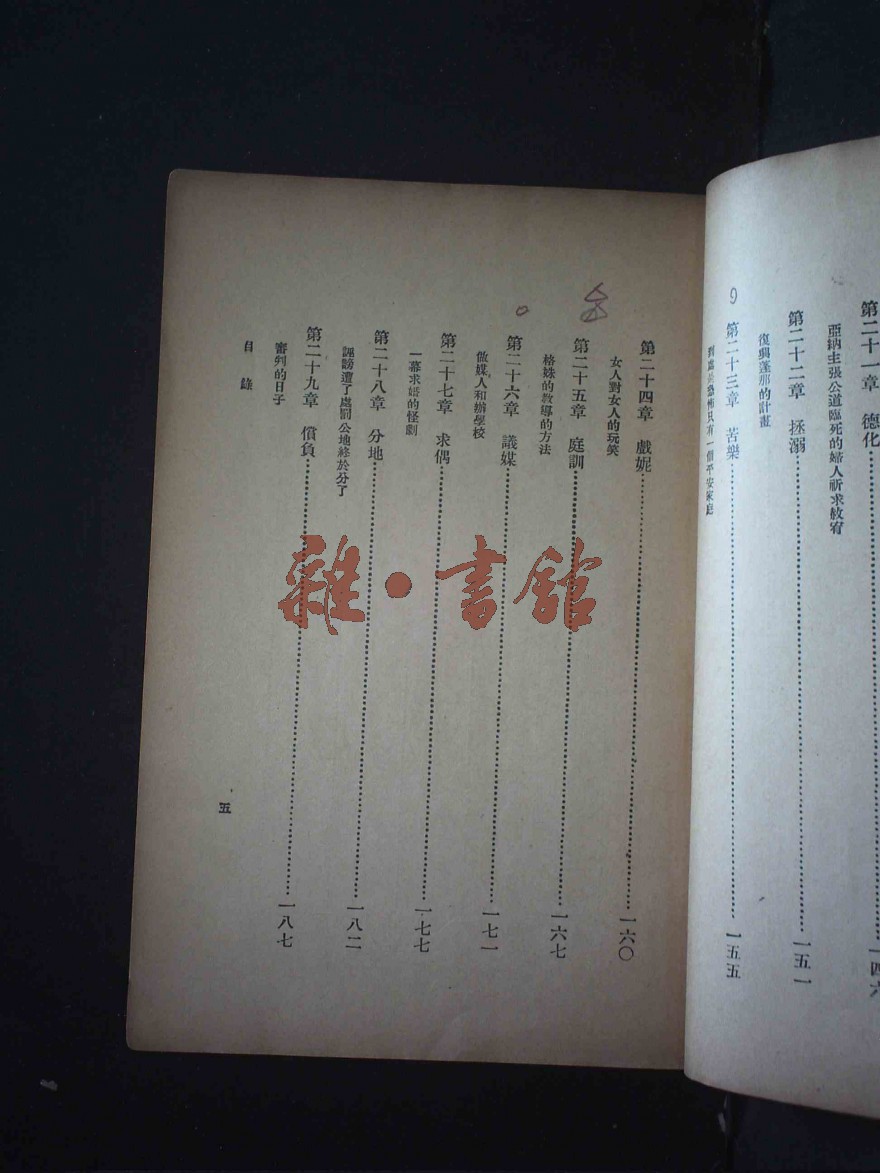 第二十一章　德化……一四六
亞納主張公道臨死的婦人祈求赦宥
第二十二章　拯溺……一五一
復興蓬那的計畫
第二十三章　苦樂……一五五
恐怖只有一個平安家庭
9
第二十四章　戲妮……一六〇
女人對女人的玩笑
第二十五章　庭訓……一六七
格姝的敎導的方法
第二十六章　議媒……一七一
做媒人和辦學校
第二十七章　求偶……一七七
一幕求婚的怪劇
第二十八章　分地……一八二
誣謗遭了處罰公地終於分了
第二十九章　償負……一八七
審判的日子
目錄
五
雜·書館